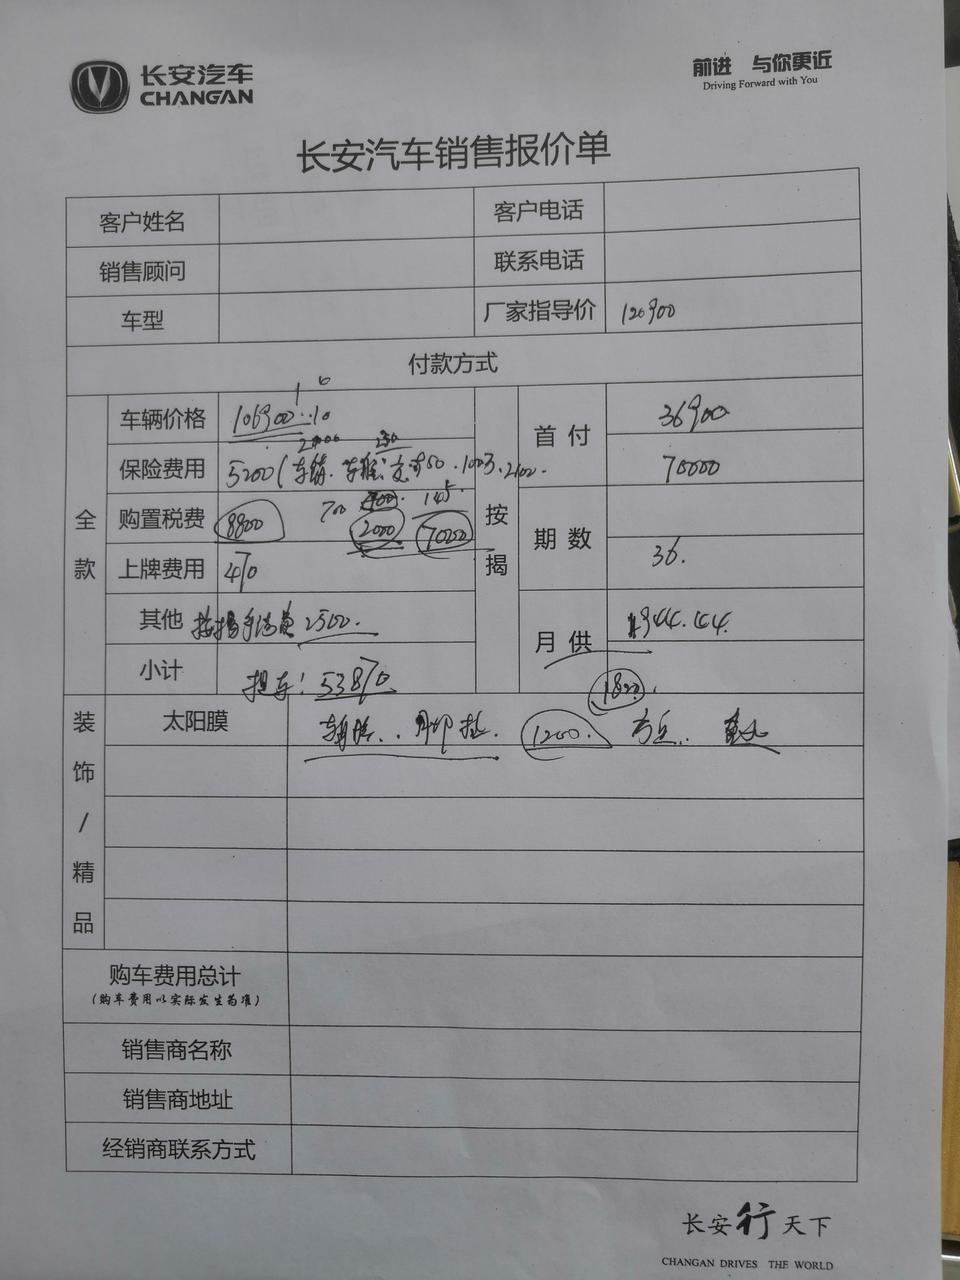 长安汽车
CHANGAN
前进 与你更近
Driving Forward with You
长安汽车销售报价单
客户姓名
客户电话
销售顾问
联系电话
车型
厂家指导价 120900
付款方式
全款
车辆价格 106900
保险费用 5200
购置税费 8800
700
2000
70000
上牌费用 470
其他 按揭手续费 2500.
小计 提车: 53870
按揭
首付 36900
70000
期数
36.
月供 1944.44.
1800.
装饰/精品
太阳膜
1200.
购车费用总计
(购车费用以实际发生为准)
销售商名称
销售商地址
经销商联系方式
长安行天下
CHANGAN DRIVES THE WORLD